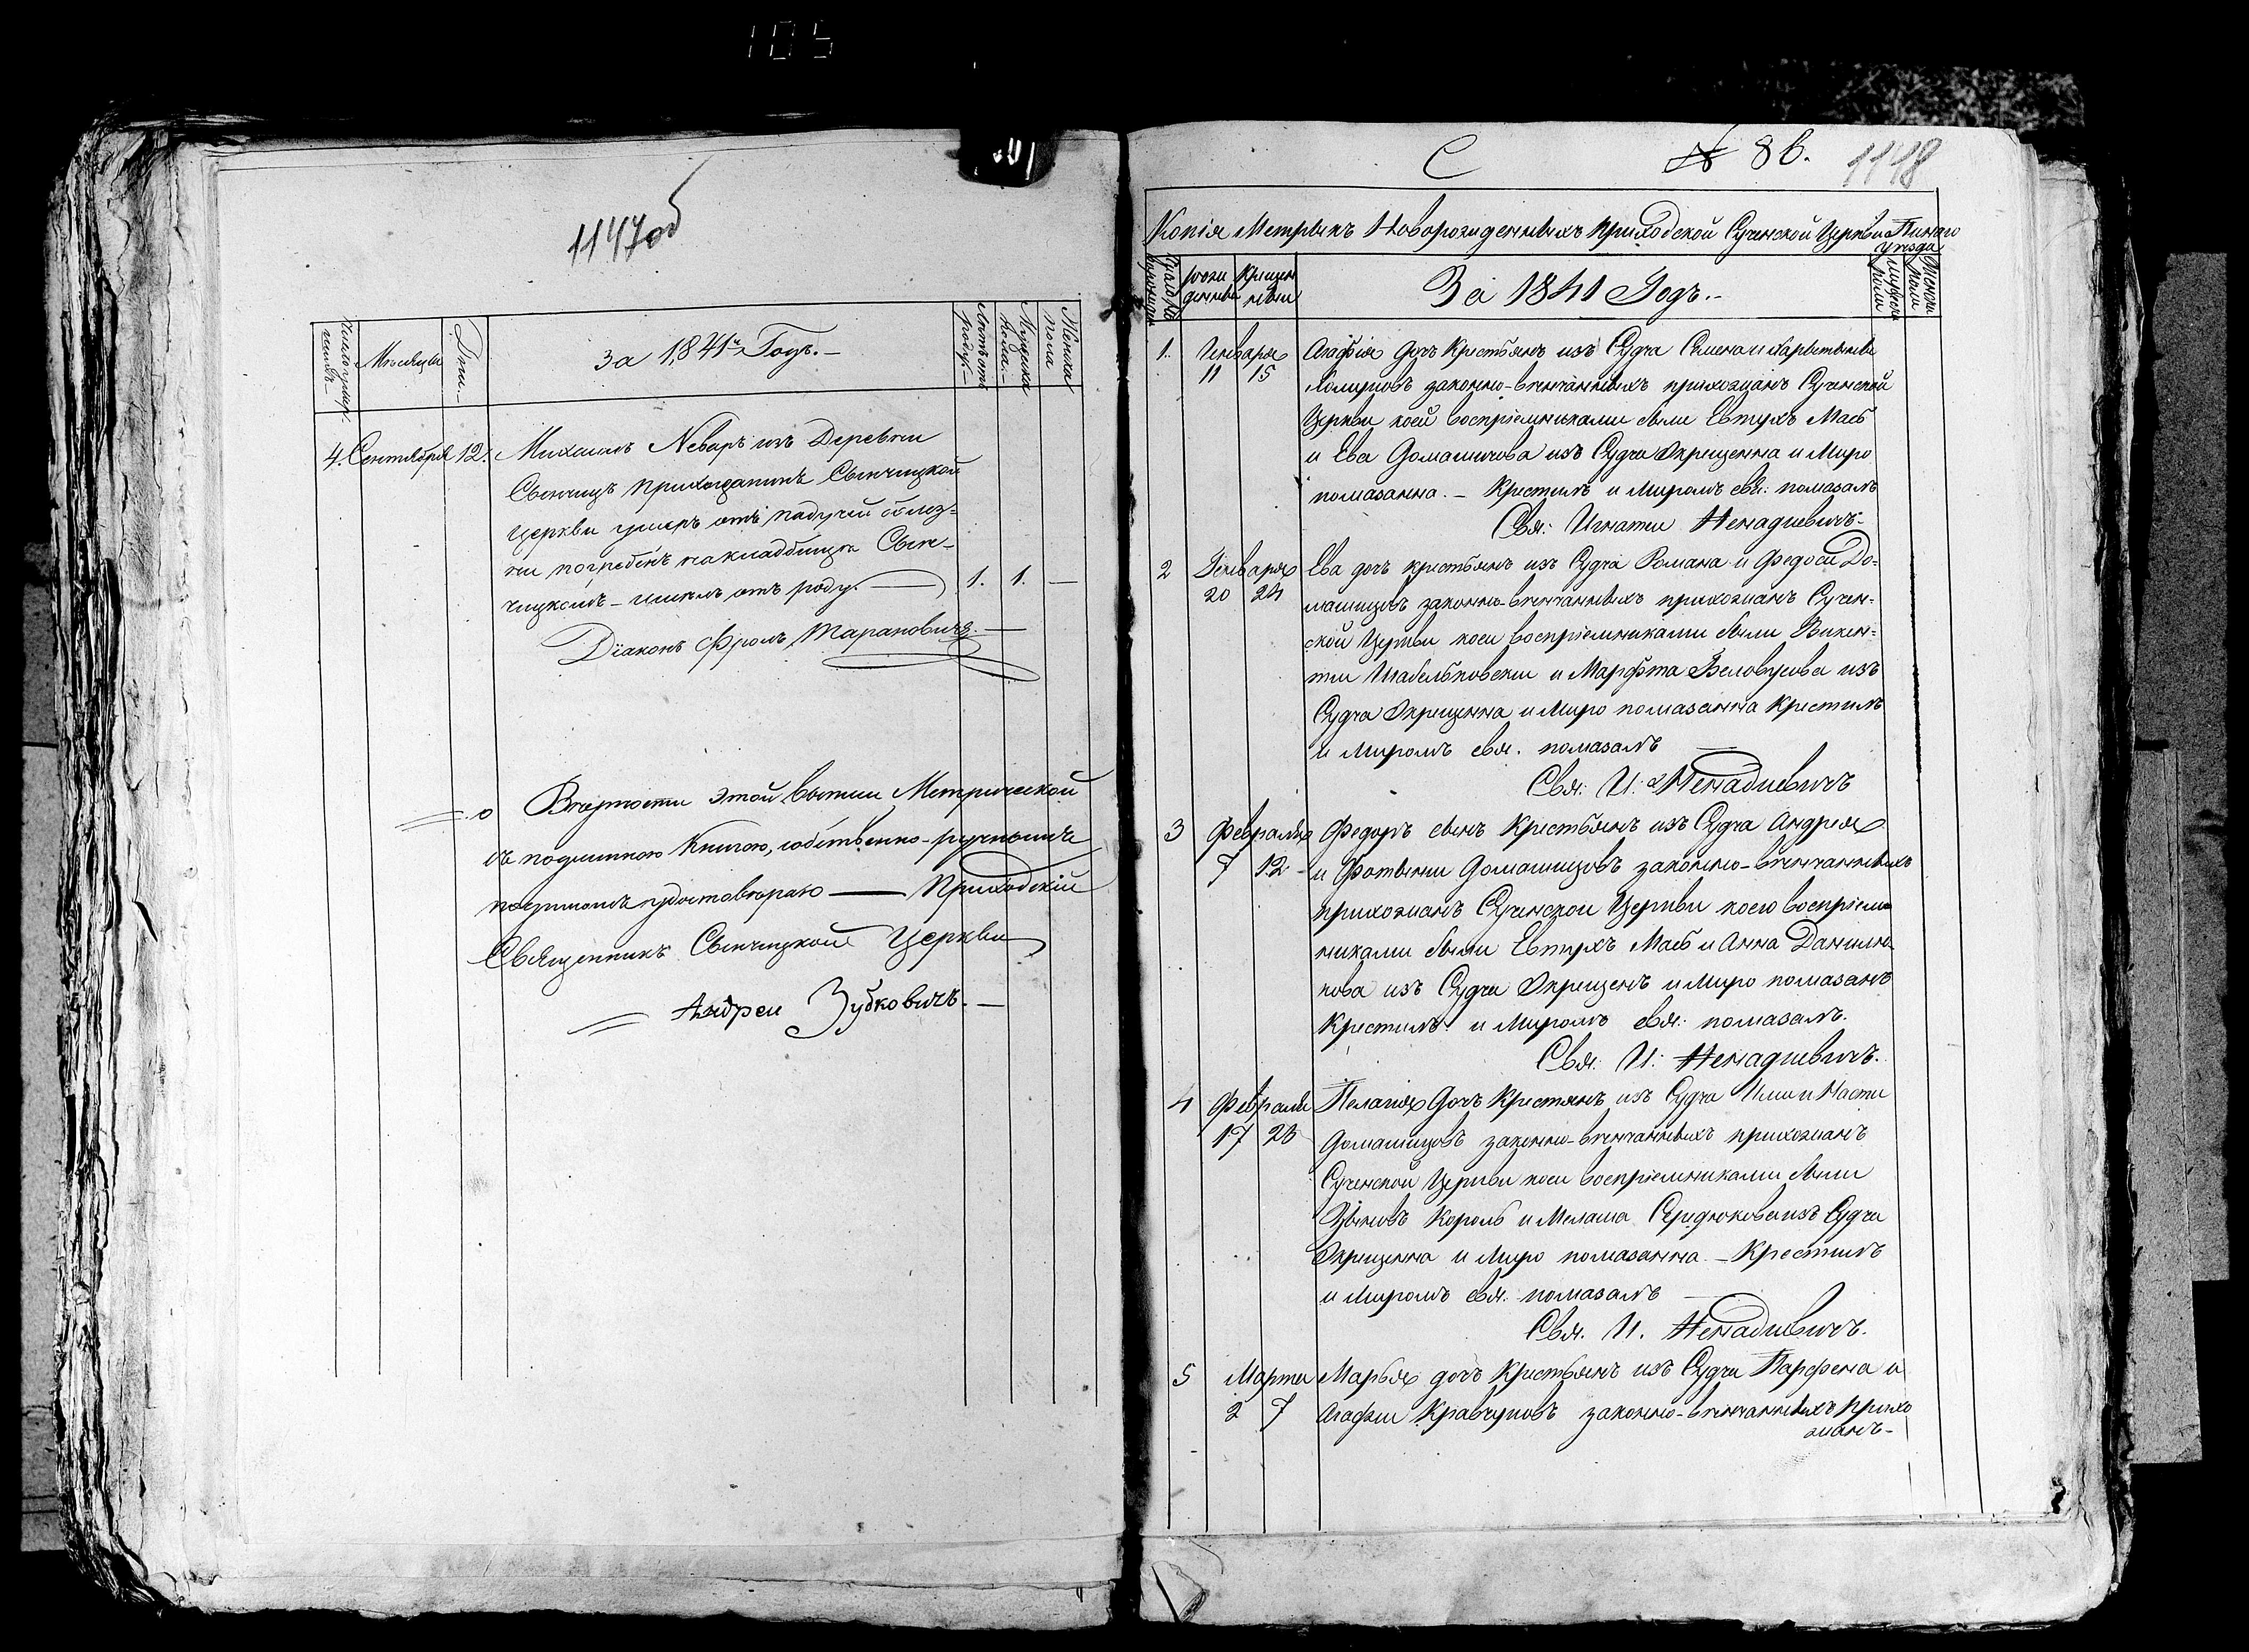 105
1147об
Число умер-
шихъ.-
Мѣсяцы
Дни.-
за 1841й Годъ.-
Лѣтъ отъ
роду.-
Мужеска
пола.-
Женска
пола
4. Сентября 12. Михаилъ Неваръ изъ Деревни
Свѣнчицъ прихожанинъ Свѣнчицкой
Церкви умеръ отъ падучей болѣз-
ни погребенъ на кладбищѣ Свѣн-
чицкомъ - имѣлъ отъ роду. — 1. 1. —
Діаконъ Фролъ Тарановичъ. —
Вѣрность этой выписи Метрической
съ подлинною Книгою, собственно-ручнымъ
подписомъ удостовѣряю — Приходскій
Священникъ Свѣнчицкой Церкви
Андрей Зубковичъ. —
С № 86. 1148
Копія Метрыкъ Новорожденныхъ Приходской Судченской Церкви Пинаго
уѣзда
рож
денныи
Крещен
ныи
За 1841 Годъ.-
мужеска
пола
Женска
пола
1. Генваря Агафія дочъ Крестьянъ изъ Судча Семена и
11 15 законно-вѣнчанныхъ прихожанъ Судченской
Церкви коей воспріемниками были Евтухъ Масъ
и Ева Домашичова изъ Судча Окрещенна и Миро
помазанна. - Крестилъ и Миромъ свя: помазалъ
Свя: Игнатий Ненадкевичъ-
2 Генваря Ева дочъ крестьянъ изъ Судча Романа и Федоси До-
20 24 машицовъ законно-вѣнчанныхъ прихожанъ Судчен-
ской Церкви коей воспріемниками были Викен-
тии Шабельковскии и Марфта Беловусова изъ
Судча Окрещенна и Миро помазанна Крестилъ
и Миромъ свя. помазалъ —
Свя: И: Ненадкевичъ
3 Февраля Федоръ сынъ Крестьянъ изъ Судча Андрея
7 12 и Фотынии Домашицовъ законно-вѣнчанныхъ
прихожанъ Судченской Церкви коего воспріем
никами были Евтухъ Масъ и Анна Данилю-
кова изъ Судча Окрещенъ и Миро помазанъ
Крестилъ и Миромъ свя: помазалъ.
Свя: И: Ненадкевичъ.
4 Февраля Пелагія Дочъ Крестянъ изъ Судча Ильи и Насти
17 23 Домашицовъ законно-вѣнчанныхъ прихожанъ
Судченской Церкви коей воспріемниками были
Король и Мелаша Середюкова изъ Судча
Окрещенна и Миро помазанна - Крестилъ
и Миромъ свя: помазалъ —
Свя. И. Ненадкевичъ.
5 Марта Марья дочъ Крестьянъ изъ Судча Парфена и
2 7 Агафии Кравчуковъ законно-вѣнчанныхъ прихо
жанъ-